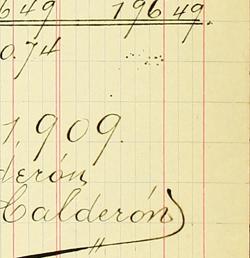 649 196 49.
0.74
1,909.
derón
Calderón